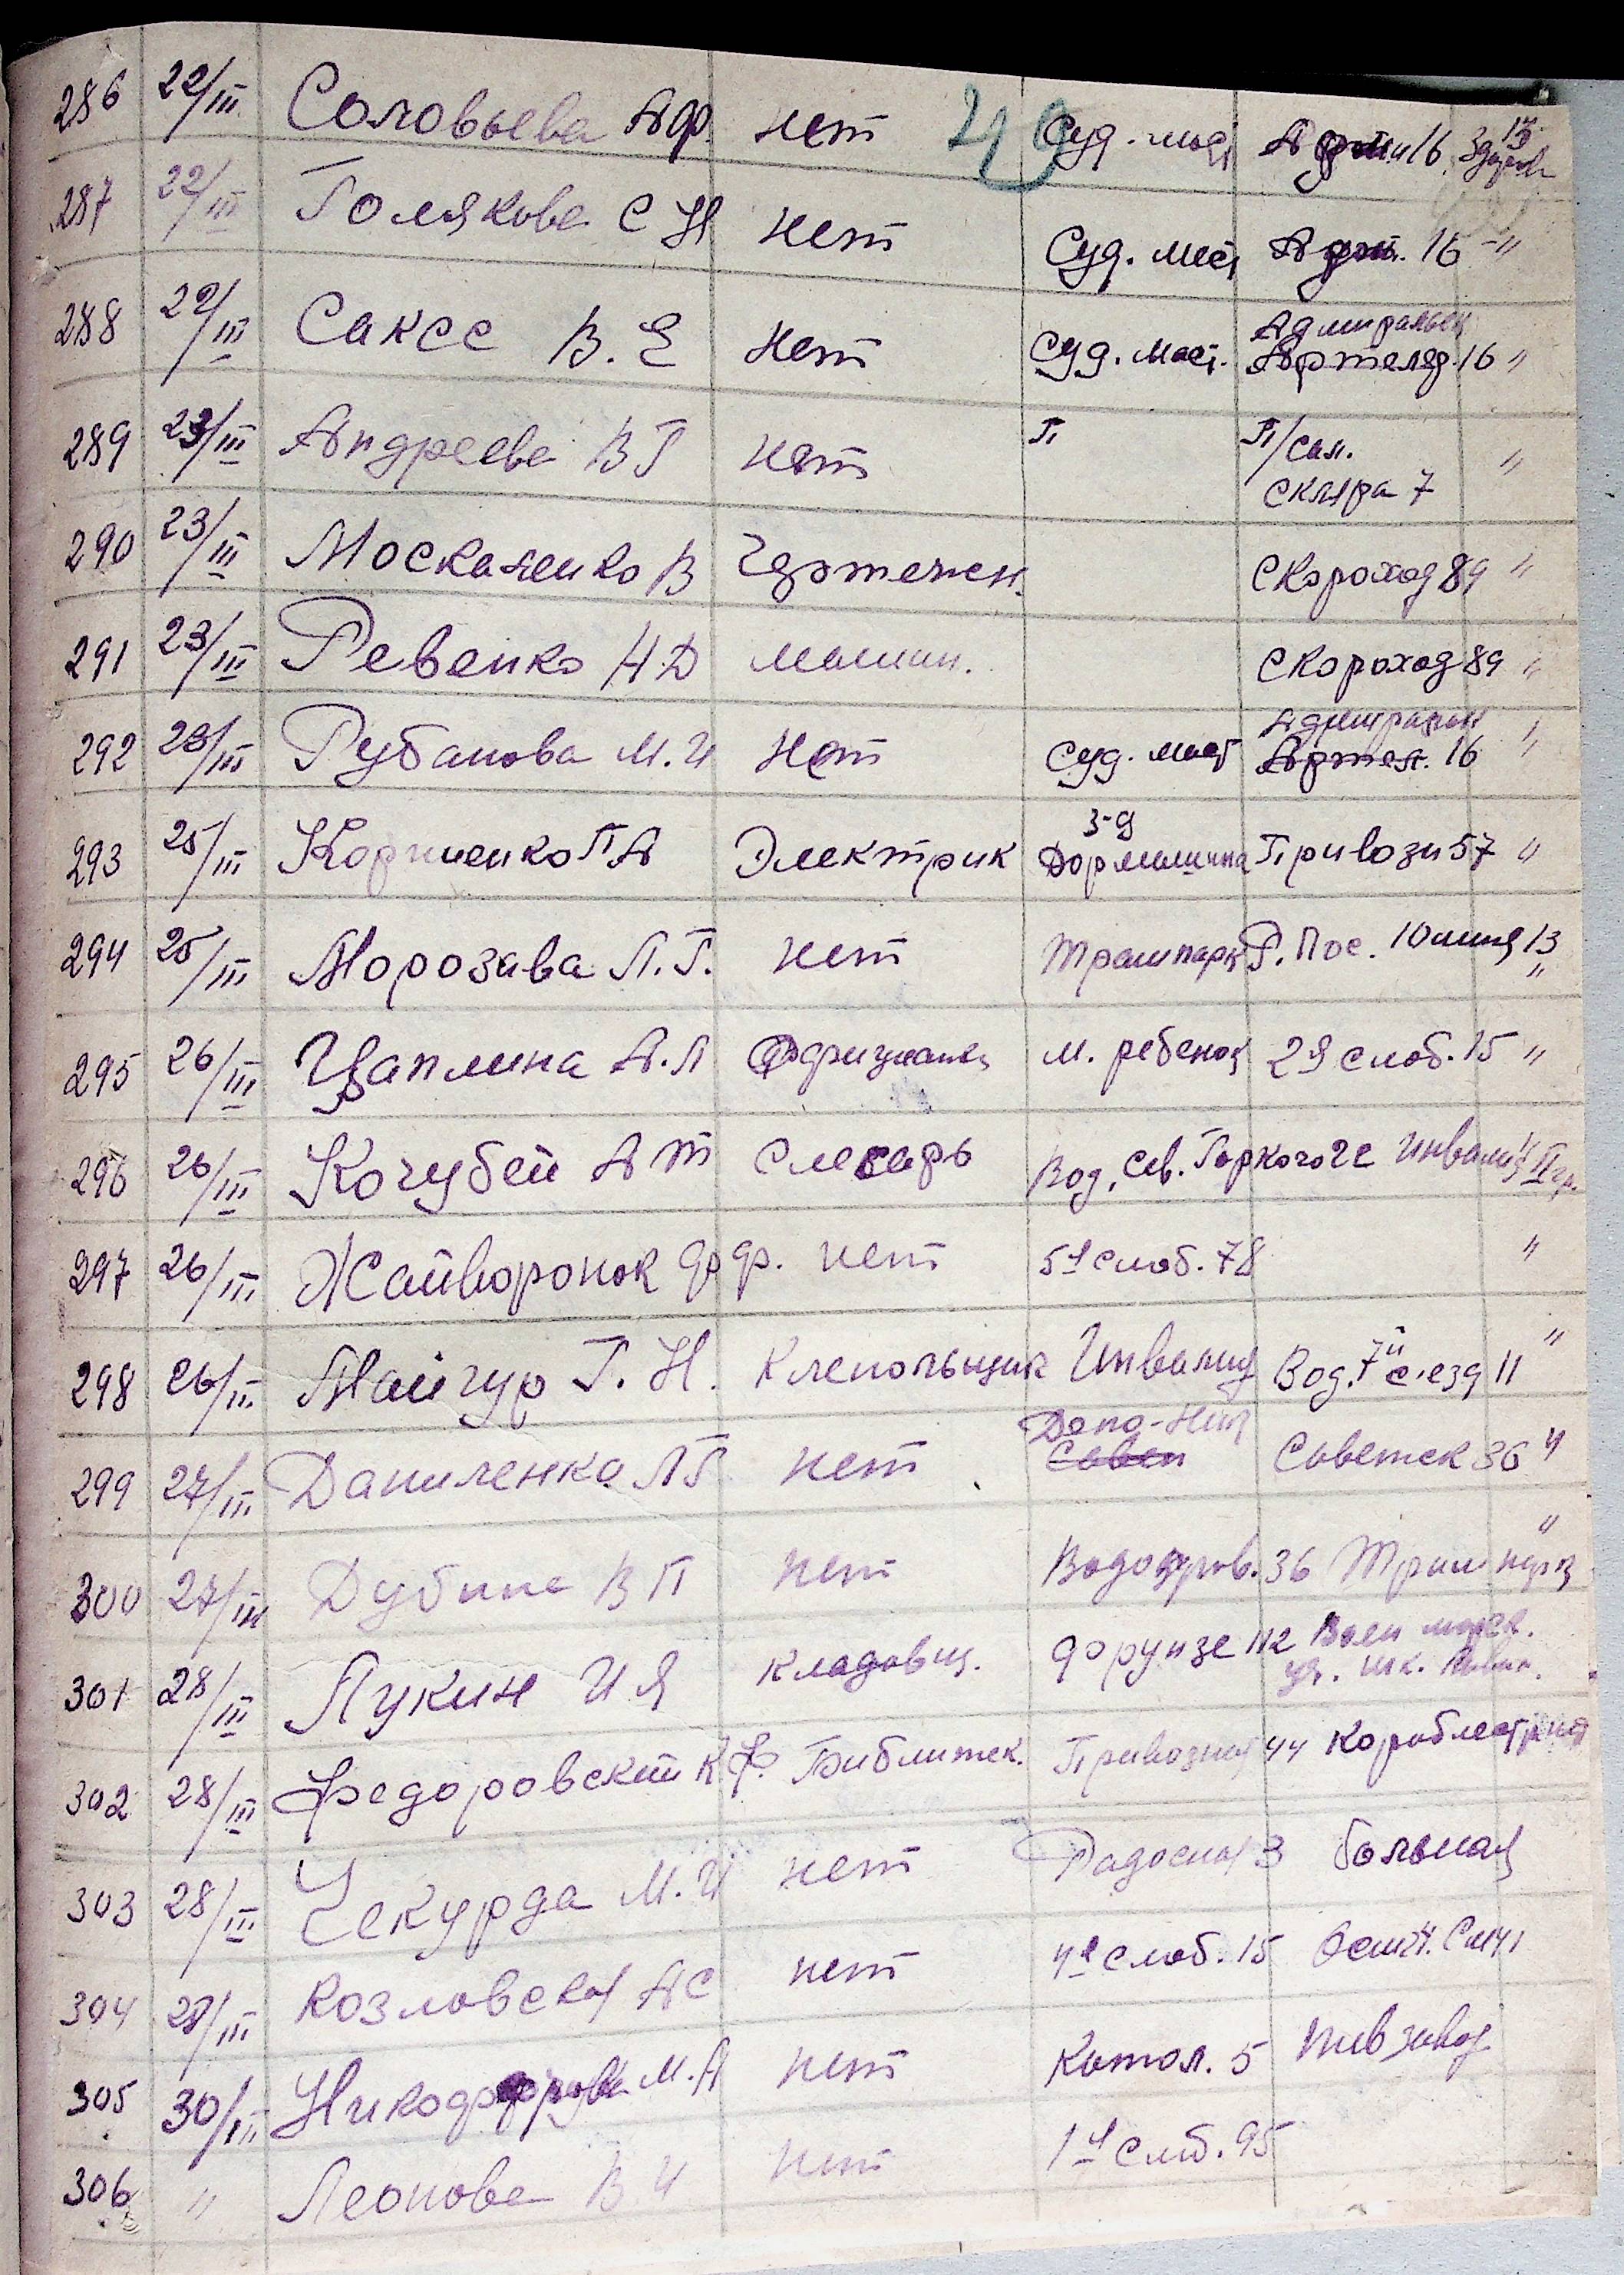 286 22/III Соловьева А ф. нет Суд. маст 16 Здоров
287 22/III Голякова С Н нет Суд. маст 16 "
Адмиральск
288 22/III Саксе В. Е нет Суд. маст. Артеляр. 16 "
289 23/III Андреева В Г нет П П/Сал. "
Скляра 7
290 23/III Москаленко В Чертежн. Скороход 89 "
291 23/III Ревенко Н Д машин. Скороход 89 "
Адмиральск
292 23/III Рубанова М. И нет Суд. маст Артел. 16 "
з-д
293 25/III Корниенко П А Электрик Дормашина Привозн 57 "
294 25/III Морозава Л. Г. нет Трампарк Р. Пос. 10 линия 13 "
295 26/III Цаплина А. Л м. ребенок 2я слоб. 15 "
296 26/III Кочубей А Т слесарь Вод. Сев. Горкого 2е Инвалид II гр.
297 26/III Жайворонок Ф Ф. нет 5я слоб. 78 "
298 26/III Майгур Г. Н. Клепольщик Инвалид Вод. 7й с'езд 11 "
299 27/III Даниленко Л Г нет Совет Советск 36 "
300 27/III Дубина В П нет Водопров. 36 Трампарк "
301 28/III Лукин И Я кладовщ. Фрунзе Воен морск.
302 28/III Федоровский К Ф. Библитек. Привозная 44 Кораблестроит
303 28/III Чекурда М. И нет Радосная 3 больная
304 28/III Козловская А С нет 4я слоб. 15
305 30/III М. А нет Катол. 5 Пивзавод
306 " Леонова В И нет 1я Слоб. 95